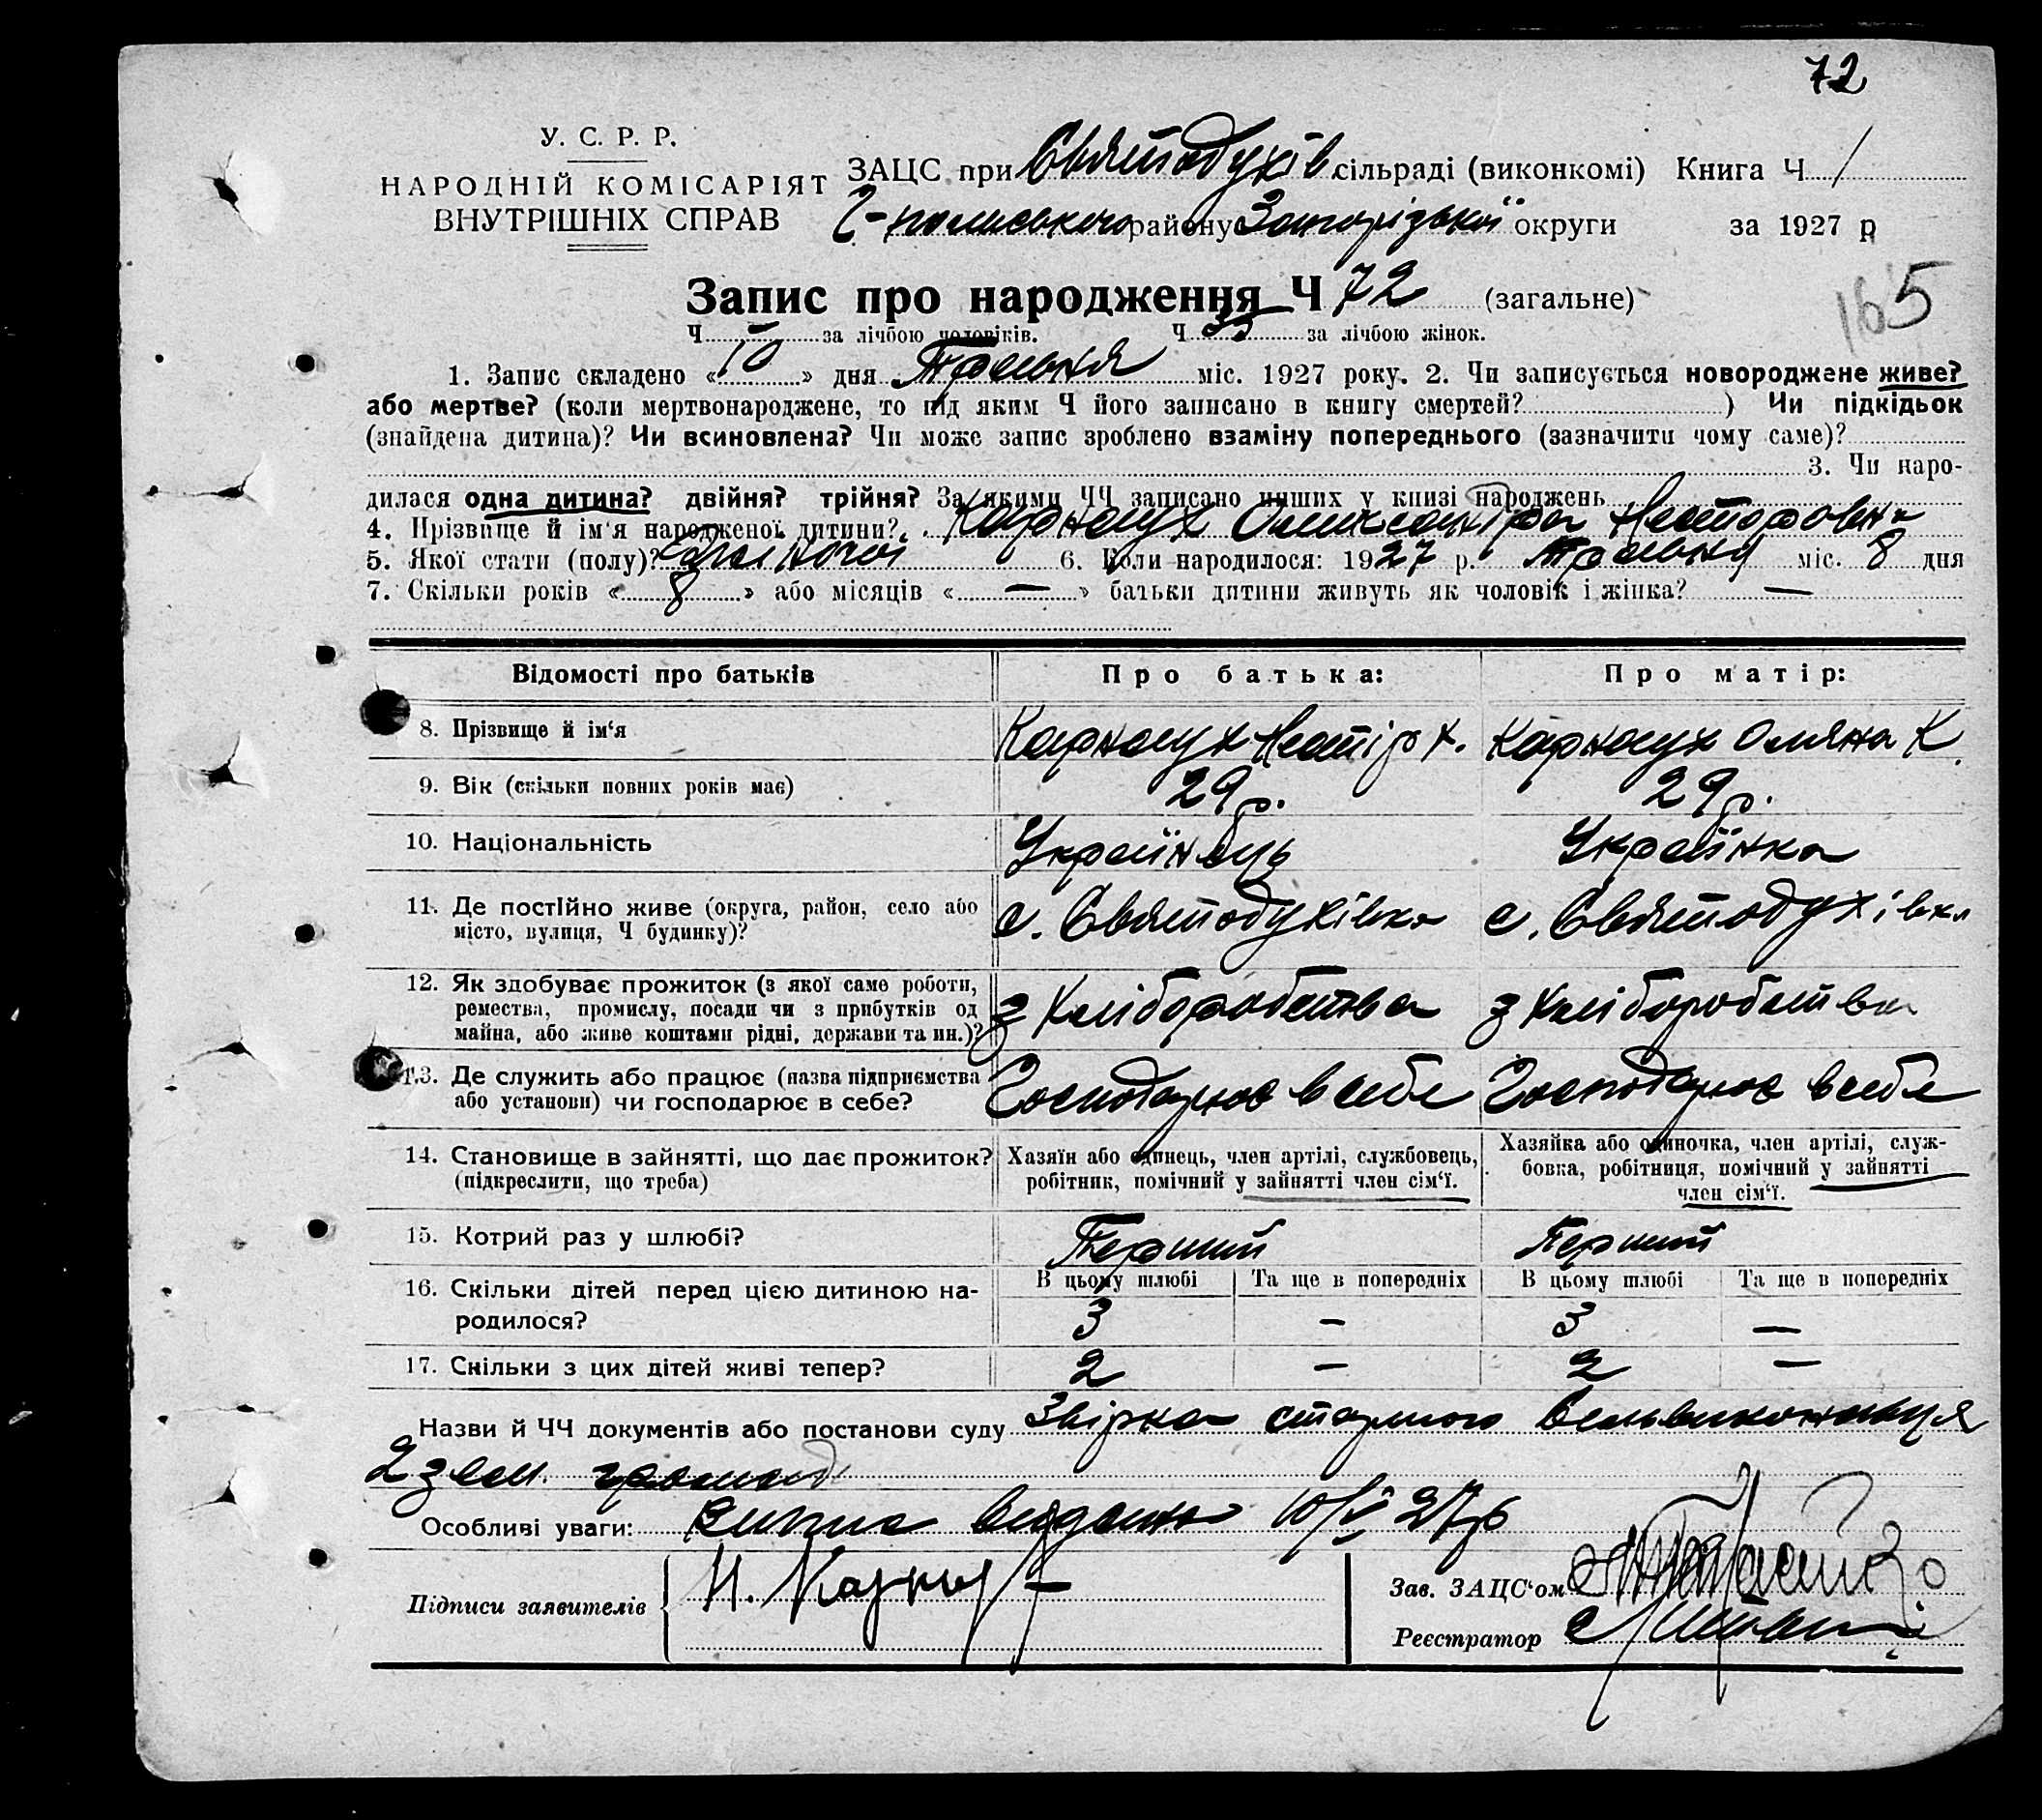 72
У. С. Р. Р.
НАРОДНІЙ КОМІСАРІЯТ
ВНУТРІШНІХ СПРАВ
ЗАЦС при Святодухів сільраді (виконкомі) Книга Ч 1
району Запорізької округи за 1927 р
Запис про народження Ч 72 (загальне)
165
Ч за лічбою чоловіків. Ч 35 за лічбою жінок.
1. Запис складено « 10 » дня Травня міс. 1927 року. 2. Чи записується новороджене живе?
або мертве? (коли мертвонароджене, то під яким Ч його записано в книгу смертей? ) Чи підкідьок
(знайдена дитина)? Чи всиновлена? Чи може запис зроблено взаміну попереднього (зазначити чому саме)?
3. Чи наро-
дилася одна дитина? двійня? трійня? За якими ЧЧ записано инших у книзі народжень
4. Прізвище й ім'я народженої дитини? Карнаух Олександра Несторовна
5. Якої стати (полу)? жіночої 6. Коли народилося: 1927 р. Травня міс. 8 дня
7. Скільки років « 8 » або місяців « — » батьки дитини живуть як чоловік і жінка? —
Відомості про батьків Про батька: Про матір:
8. Прізвище й ім'я Карнаух Нестір Х. Карнаух Оляна К.
9. Вік (скільки повних років має) 29 р. 29 р.
10. Національність Українець Українка
11. Де постійно живе (округа, район, село або
місто, вулиця, Ч будинку)? с. Святодухівка с. Святодухівка
12. Як здобуває прожиток (з якої саме роботи,
ремества, промислу, посади чи з прибутків од
майна, або живе коштами рідні, держави та ин.)? з Хліборобства з Хліборобства
13. Де служить або працює (назва підприємства
або установи) чи господарює в себе? Господарює в себе Господарює в себе
14. Становище в зайнятті, що дає прожиток?
(підкреслити, що треба)
Хазяїн або одинець, член артілі, службовець,
робітник, помічний у зайнятті член сім'ї.
Хазяйка або одиночка, член артілі, служ-
бовка, робітниця, помічний у зайнятті
член сім'ї.
15. Котрий раз у шлюбі? Перший Перший
В цьому шлюбі Та ще в попередніх В цьому шлюбі Та ще в попередніх
16. Скільки дітей перед цією дитиною на-
родилося? 3 — 3 —
17. Скільки з цих дітей живі тепер? 2 — 2 —
Назви й ЧЧ документів або постанови суду Звірка сталого сельвиконавця
2 зем. громад
Особливі уваги: видано 10/V 27 р
Підписи заявителів Н. Карнаух
Зав. ЗАЦС'ом
Реєстратор